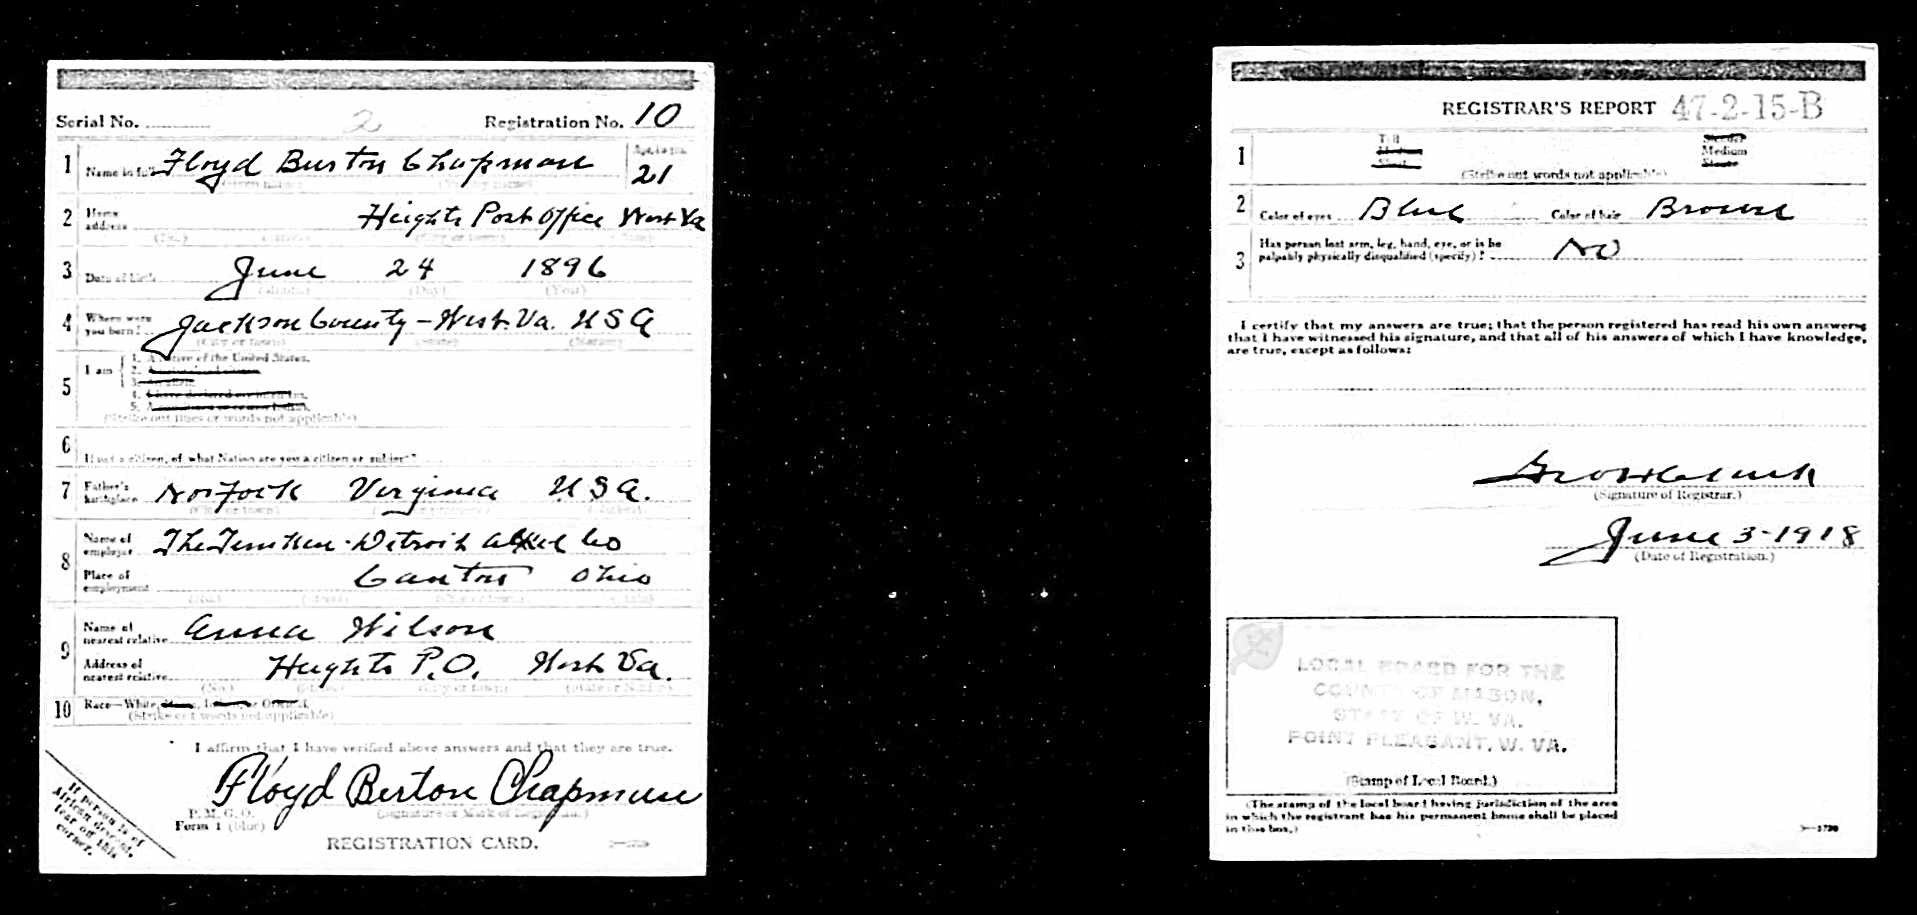 Serial No. 2 Registration No. 10
1 Name in full Floyd Burton Chapman Age, in yrs. 21
(Given name) (Family name)
2 Home address Heights Post Office West Va
(No.) (Street) (City or town) (State)
3 Date of birth June 24 1896
(Month) (Day) (Year)
4 Where were you born? Jackson County - West. Va. U S A
(City or town) (State) (Nation)
5 I am
1. A native of the United States.
2. A naturalized citizen.
3. An alien.
4. I have declared my intention.
5. A
(Strike out lines or words not applicable)
6 If not a citizen, of what Nation are you a citizen or subject?
7 Father's birthplace Norfolk Virginia U.S.A.
(City or town)
8 Name of employer The Timken-Detroit Co
Place of employment Canton Ohio
9 Name of nearest relative Anna Wilson
Address of nearest relative Heights P.O. West Va.
(No.) (Street) (City or town) (State or Nation)
10 Race—White, or Oriental.
(Strike out words not applicable)
I affirm that I have verified above answers and that they are true.
Floyd Berton Chapman
P. M. G. O.
Form 1 (blue)
(Signature or Mark of Registrant.)
REGISTRATION CARD.
If person is of
African descent,
tear off this
corner.
REGISTRAR'S REPORT 47-2-15-B
1 Tall Medium Short Slender Medium Stout
(Strike out words not applicable)
2 Color of eyes Blue Color of hair Brown
3 Has person lost arm, leg, hand, eye, or is he
palpably physically disqualified (specify)? No
I certify that my answers are true; that the person registered has read his own answers,
that I have witnessed his signature, and that all of his answers of which I have knowledge,
are true, except as follows:
(Signature of Registrar.)
June 3-1918
(Date of Registration.)
LOCAL BOARD FOR THE
COUNTY OF MASON,
STATE OF W. VA.
POINT PLEASANT, W. VA.
(Stamp of Local Board.)
(The stamp of the local board having jurisdiction of the area
in which the registrant has his permanent home shall be placed
in this box.)